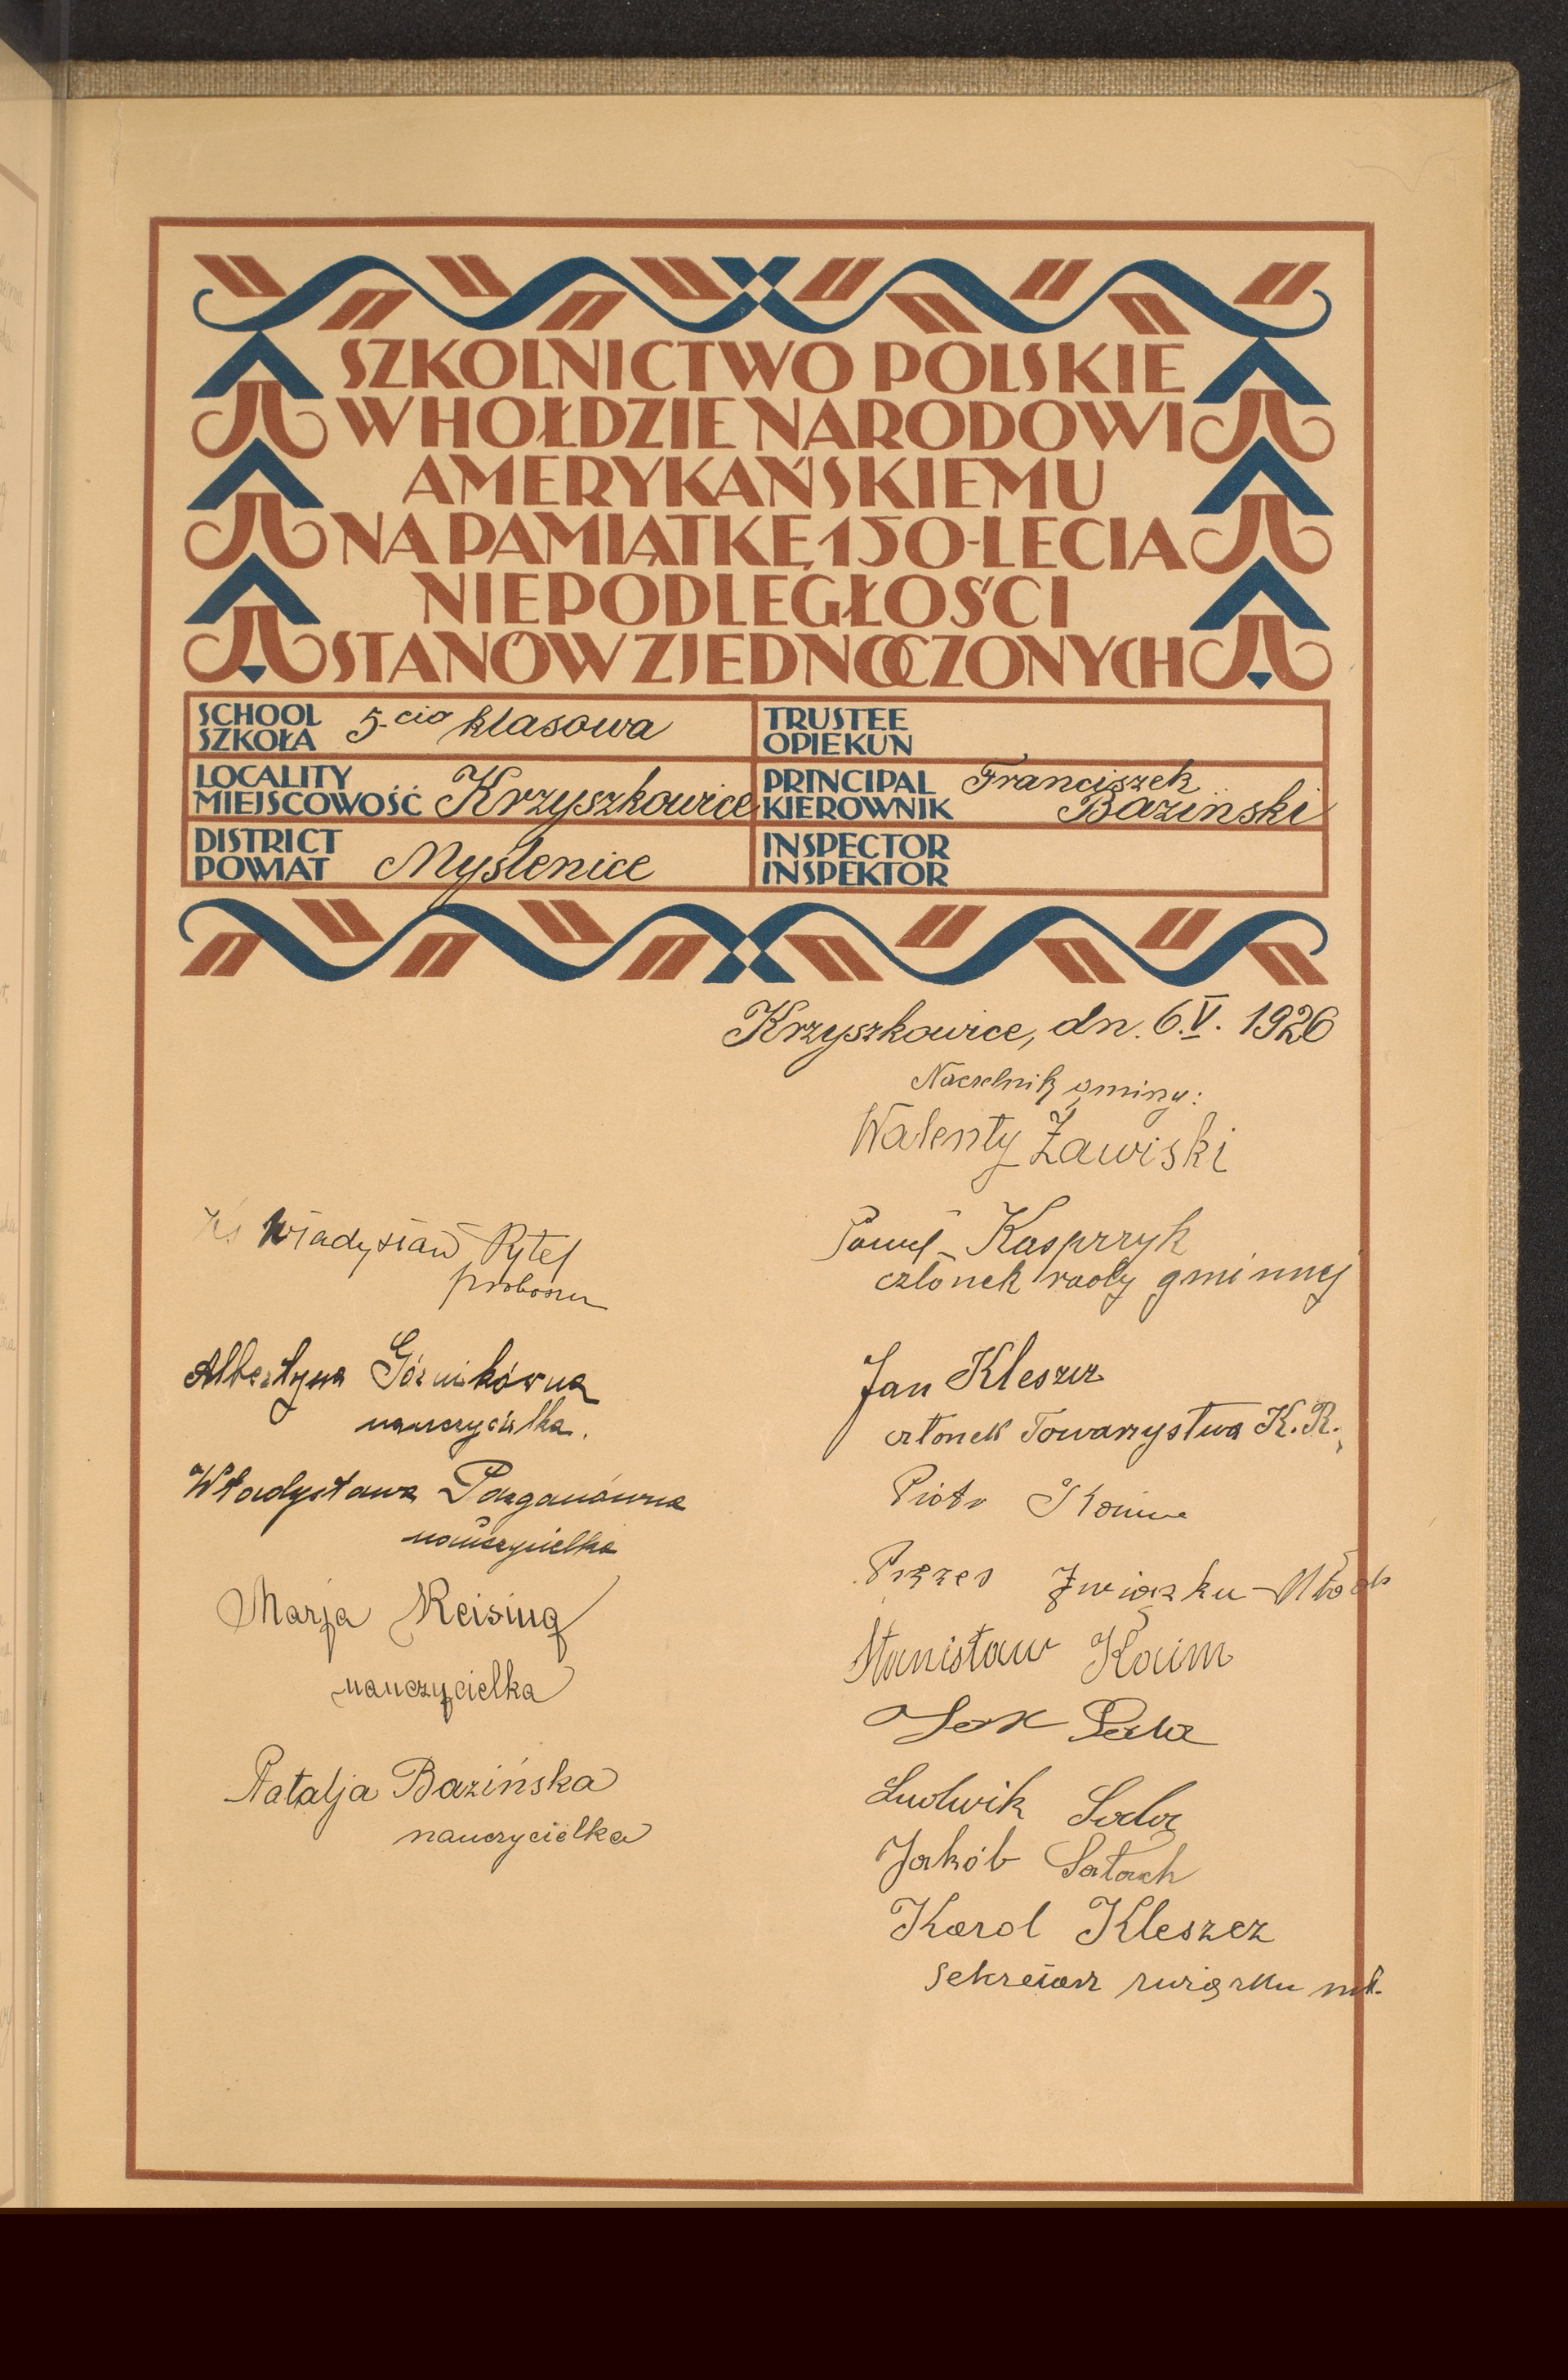 SZKOLNICTWO POLSKIE
W HOŁDZIE NARODOWI
AMERYKAŃSKIEMU
NA PAMIĄTKĘ 150-LECIA
NIEPODLEGŁOŚCI
STANÓW ZJEDNOCZONYCH
SCHOOL
SZKOŁA 5-cio klasowa
TRUSTEE
OPIEKUN
LOCALITY
MIEJSCOWOŚĆ Krzyszkowice
PRINCIPAL Franciszek
KIEROWNIK Baziński
DISTRICT
POWIAT Myślenice
INSPECTOR
INSPEKTOR
Krzyszkowice, dn. 6.V. 1926
Naczelnik gminy:
Walenty Żawiski
Ks Władysław Pytel
proboszcz
Albertyna Górnikówna
nauczycielka.
Władysława
nauczycielka
Marja Reising
nauczycielka
Natalja Bazińska
nauczycielka
Paweł Kasprzyk
członek rady gminnej
Jan Kleszcz
członek Towarzystwa K. R.
Piotr
Prezes Związku Młodz
Stanisław Kaim
Ludwik
Jakób Satoch
Karol Kleszcz
Sekretarz związku mł.